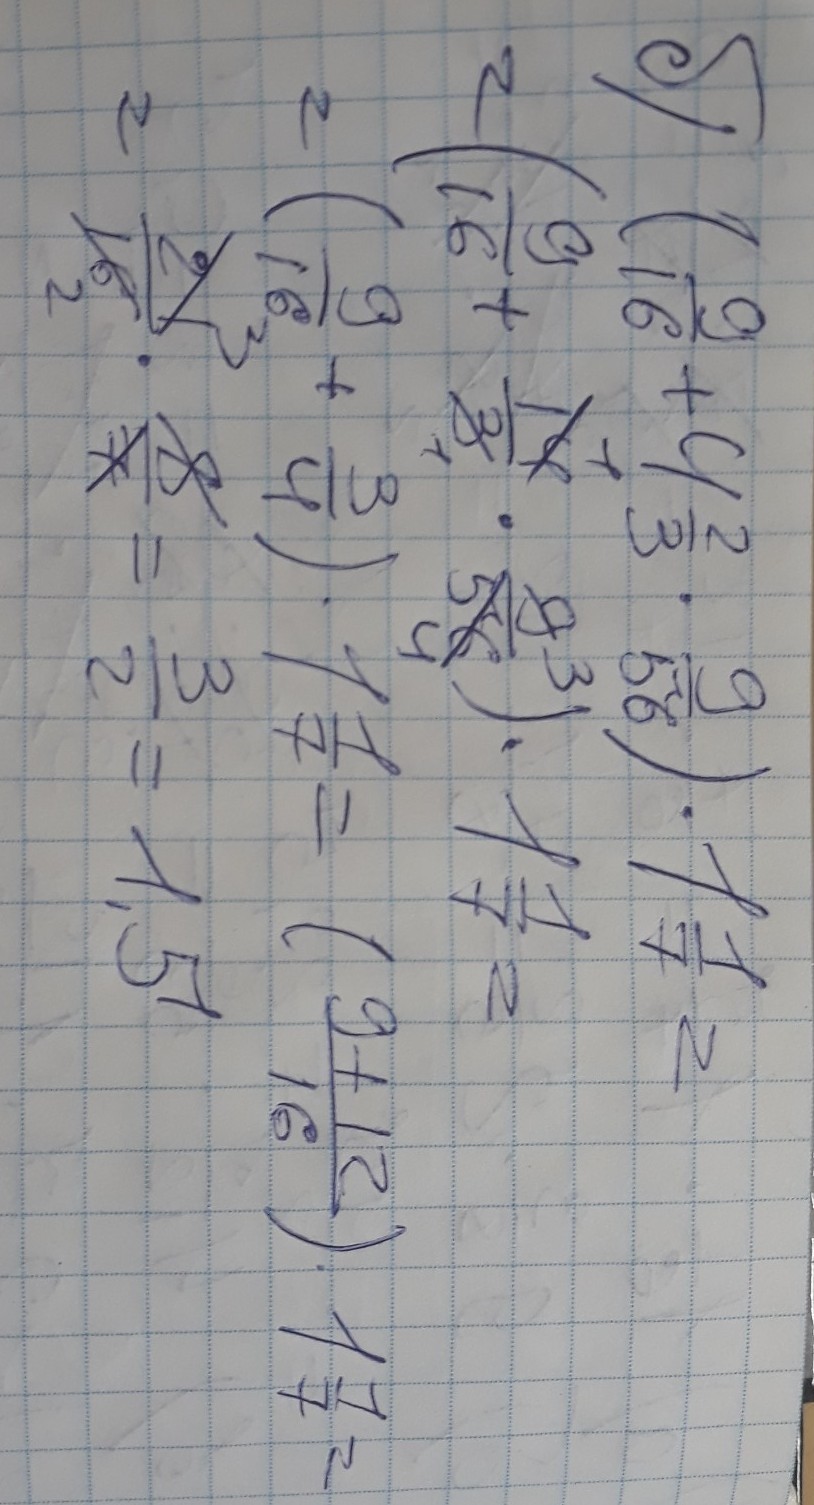 δ) (9/16 + 4 2/3 · 9/56) · 1 1/7 =
= (9/16 + 14/3 · 9/56) · 1 1/7 =
= (9/16 + 3/4) · 1 1/7 = (9+12/16) · 1 1/7 =
= 21/16 · 8/7 = 3/2 = 1,5